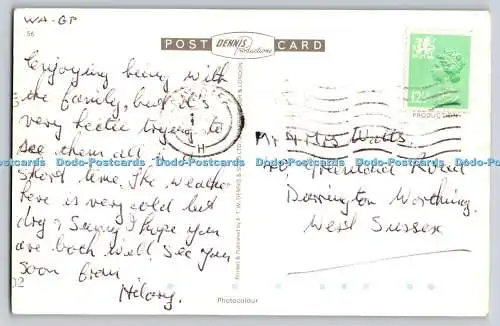 WA-GP
56
POST DENNIS Productions CARD
Enjoying being with
the family, but it's
very hectic trying to
see them all in
short time. The weather
here is very cold but
dry & Sunny I hope you
are both well. See you
soon from
Hilary.
12½
PRODUCTION
H
Mr & Mrs Watts.
Road
Durrington Worthing.
West Sussex
Printed & Published by E.T.W. DENNIS & SONS LTD. & LONDON
Photocolour
Dodo-Postcards Dodo-Postcards Dodo-Postcards Dodo-Postcards Dodo-Postcards